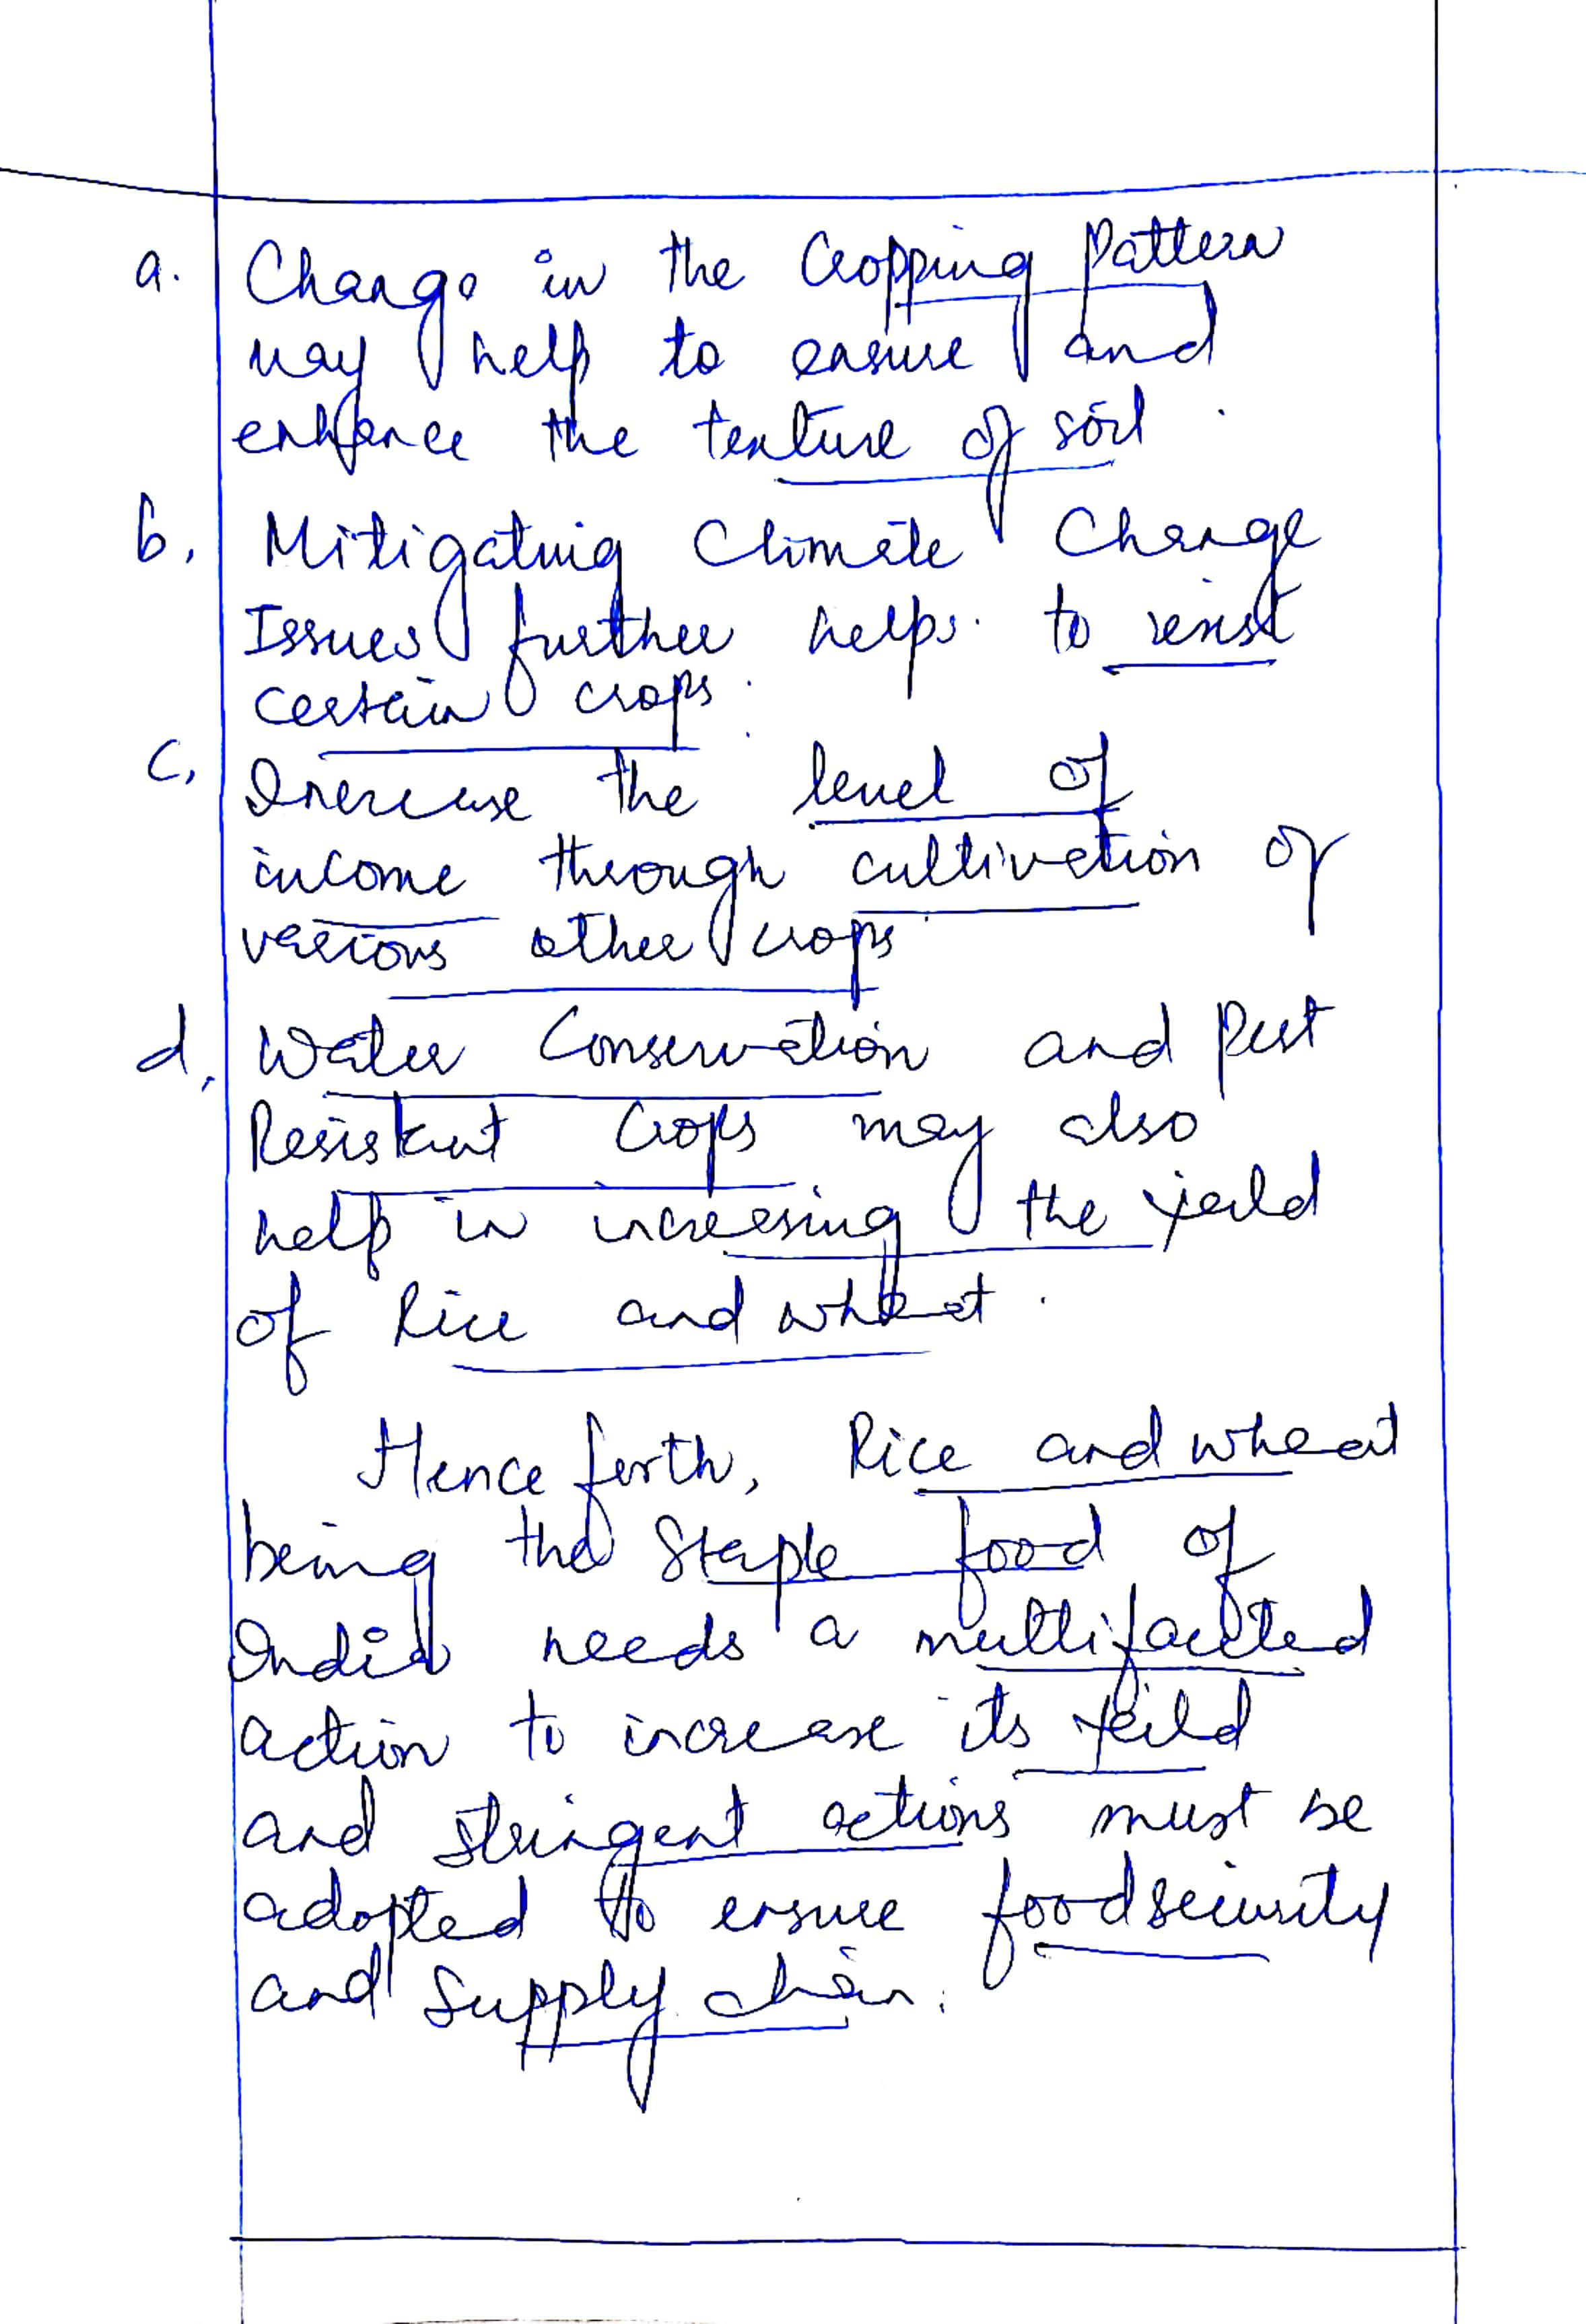 a. Change in the Cropping Pattern
may help to ensure and
enhance the texture of soil.
b. Mitigating Climate Change
Issues further helps to resist
certain crops.
c. Increase the level of
income through cultivation of
various other crops
d. Water Conservation and Pest
Resistant Crops may also
help in increasing the yeild
of Rice and wheat.
Hence forth, Rice and wheat
being the Staple food of
India needs a multifaceted
action to increase its yeild
and stringent actions must be
adopted to ensure food security
and Supply chain.